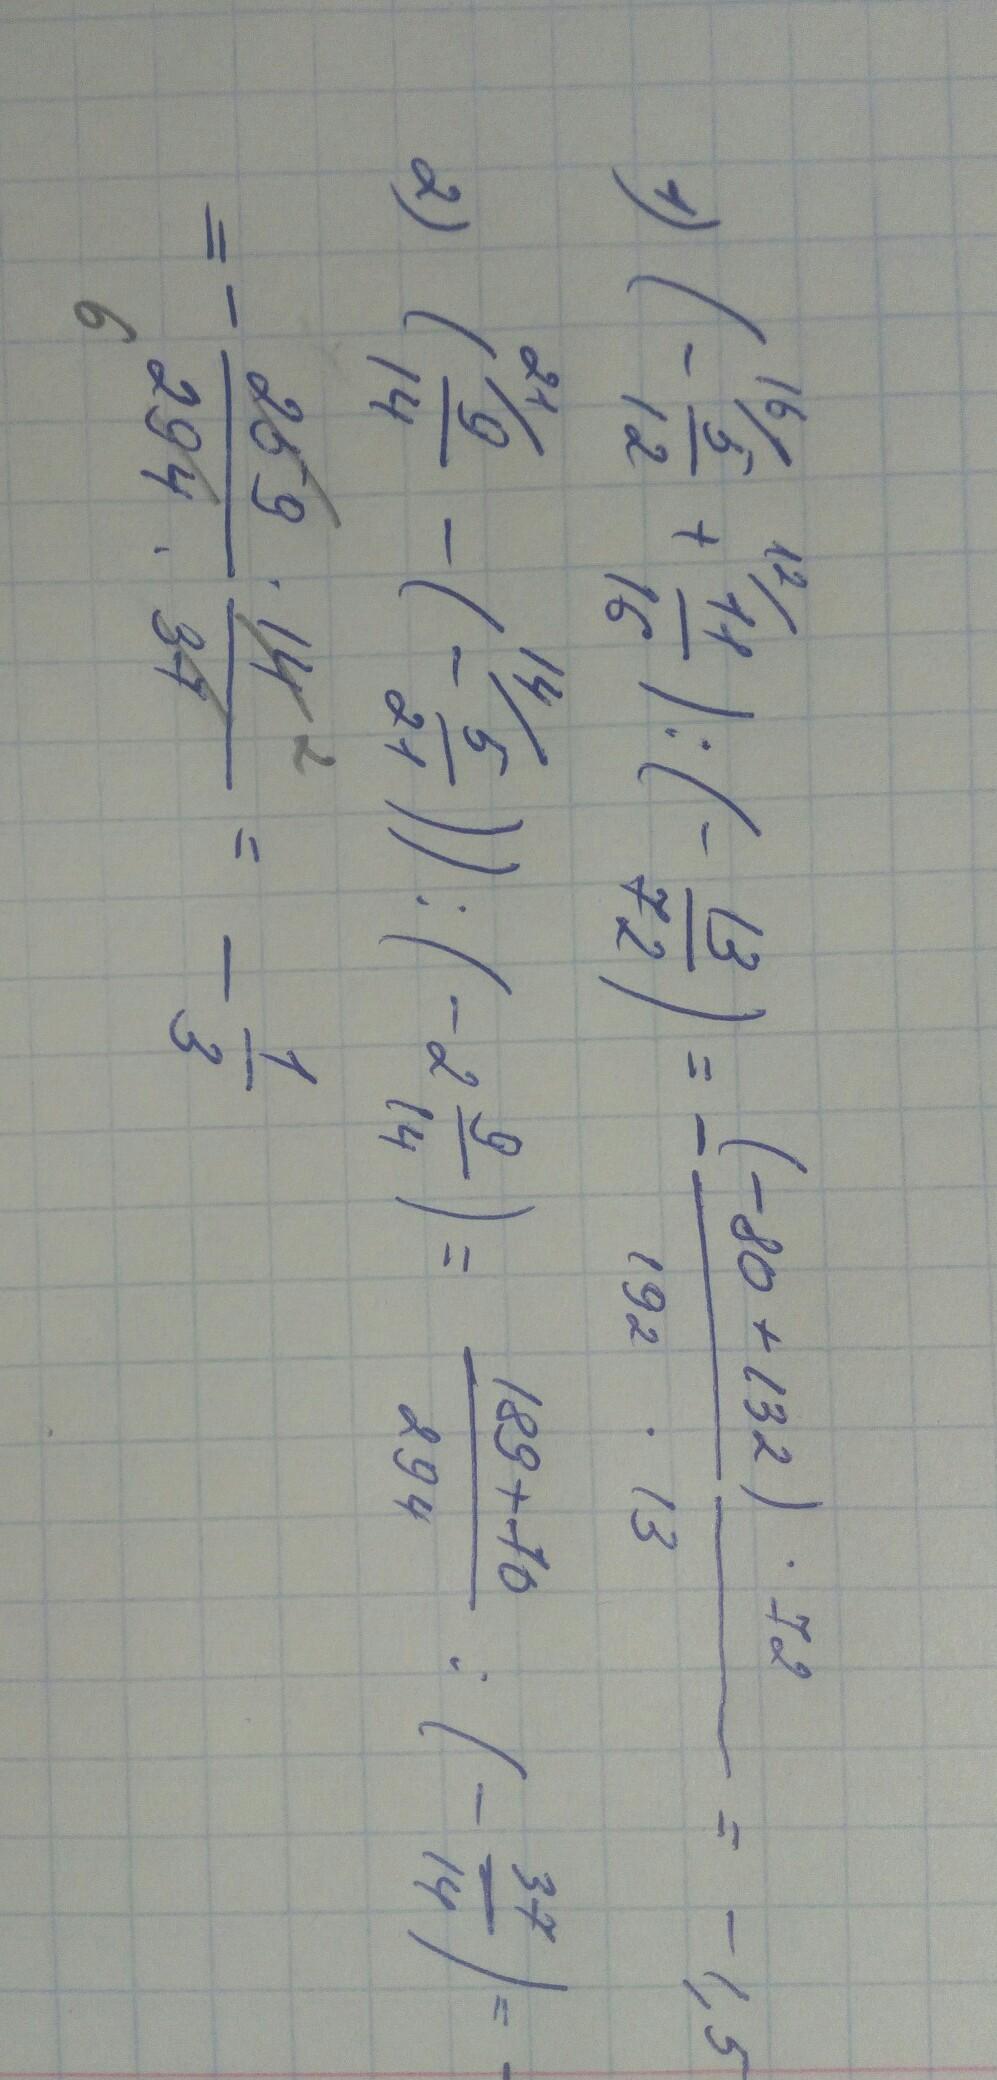 1) ( 16/ - 5/12 + 12/ 11/16 ) : ( - 13/72 ) = - (-80 + 132) · 72 / 192 · 13 = - 1,5
2) ( 21/ 9/14 - ( - 14/ 5/21 )) : ( - 2 9/14 ) = 189+70 / 294 : ( - 37/14 ) = -
= - 259 · 14 2 / 6 294 · 37 = - 1/3